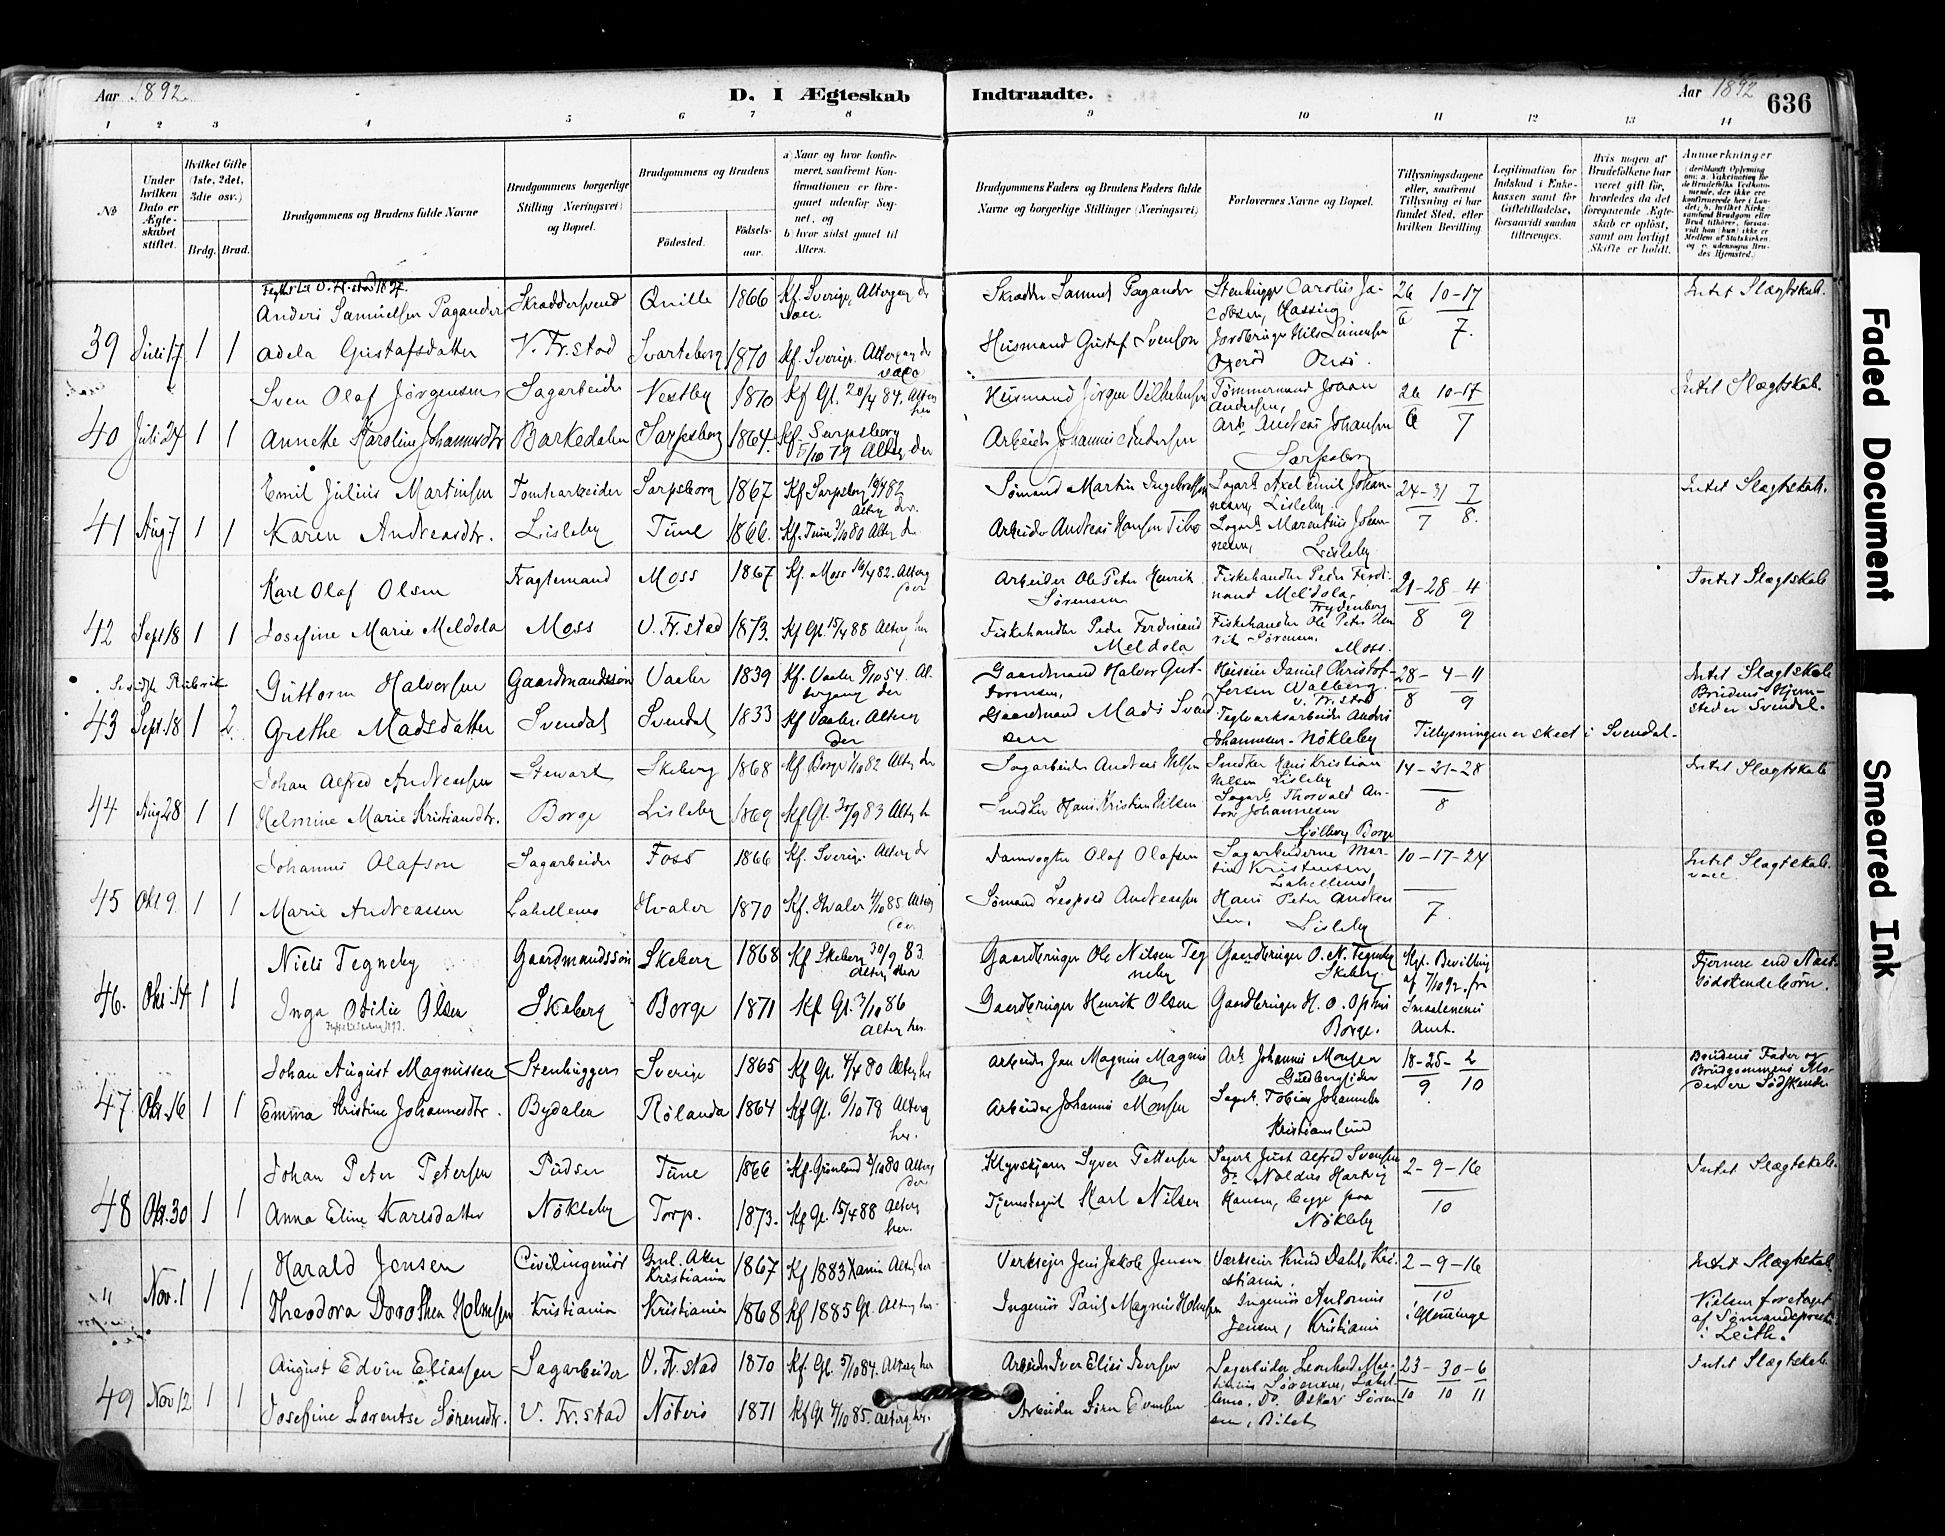 Aar 1892.
D. I Ægteskab
Indtraadte.
Aar 1892
636
1 2 3 4 5 6 7 8 9 10 11 12 13 14
No
Under hvilken Dato er Ægteskabet stiftet.
Hvilket Gifte (1ste, 2det, 3die osv.)
Brdg. Brud.
Brudgommens og Brudens fulde Navne
Brudgommens borgerlige Stilling (Næringsvei) og Bopæl.
Brudgommens og Brudens
Fødested.
Fødselsaar.
a) Naar og hvor konfirmeret, saafremt Konfirmationen er foregaaet udenfor Sognet, og
b) hvor sidst gaaet til Alters.
Brudgommens Faders og Brudens Faders fulde Navne og borgerlige Stillinger (Næringsvei)
Forlovernes Navne og Bopæl.
Tillysningsdagene eller, saafremt Tillysning ei har fundet Sted, efter hvilken Bevilling
Legitimation for Indskud i Enkekassen samt for Giftetilladelse, forsaavidt saadan tiltrænges.
Hvis nogen af Brudefolkene har været gift før, hvorledes da det foregaaende Ægteskab er opløst, samt om lovligt Skifte er holdt.
Anmærkninger
Anders Samuelsen Pagander Skrædersvend Qville 1866 Kf. Sverige, Altergang der vacc.
Skræder Samuel Pagander
26 10-17
Intet Slægtskab.
39 Juli 17 1 1 Adela Gustafsdatter V. Fr.stad Svarteborg 1870 Kf. Sverige. Alterg der vacc
Husmand Gustaf Svenson
6 7.
Sven Olaf Jørgensen Sagarbeider Vestby 1870 Kf Gl. 20/4 84. Alterg her
Husmand Jörgen Vilhelmsen Tømmermand Johan Andersen,
26 10-17
Intet Slægtskab.
40 Juli 24 1 1 Annette Karoline Johannesdtr Barkedalen Sarpsborg 1864. Kf. Sarpsborg 5/10 79 Alterg der
Arbeider Johannes Andersen Arb. Andreas Johansen Sarpsborg
6 7
Emil Julius Martinsen Tomtearbeider Sarpsborg 1867 Kf Sarpsborg
Sømand Martin Sagarb. Axel Emil Johannesen, Lisleby
24-31 7
Intet Slægtskab.
41 Aug 7 1 1 Karen Andreasdtr. Lisleby Tune 1866. Kf. Tune
Arbeider Andreas Hansen Sagarb. Marentius Johannesen, Lisleby
7 8.
Karl Olaf Olsen Fragtemand Moss 1867 Kf. Moss 16/4 82. Alterg der
Arbeider Ole Peter Henrik Sørensen Fiskehandler Peder Ferdinand Meldola, Frydenberg
21-28 4
Intet Slægtskab
42 Sept 18 1 1 Josefine Marie Meldola Moss V. Fr.stad 1873. Kf Gl 15/4 88 Alterg her
Fiskehandler Peder Ferdinand Meldola Fiskehandler Ole Peter Henrik Sørensen. Moss.
8 9
Se sidste Rubrik
Guttorm Halvorsen Gaardmandssøn Vaaler 1839 Kf. Vaaler 8/10 54. Altergang der
Gaardmand Halvor Guttormsen, Daniel Christofersen Walberg. V. Fr.stad
28-4-11
Intet Slægtskab Brudens Hjemsted er Svendal.
43 Sept. 18 1 2. Grethe Madsdatter Svendal Svendal 1833 Kf Vaaler. Alterg der
Gaardmand Mads Svendsen Teglværksarbeider Anders Johannesen-Nökleby
8 9
Tillysningen er skeet i Svendal.
Johan Alfred Andreassen Stewart Skeberg 1868 Kf Borge 1/10 82 Alterg der
Sagarbeider Andreas Nilsen Snedker Hans Kristian Nilsen Lisleby
14-21-28
Intet Slægtskab
44 Aug 28 1 1 Helmine Marie Kristiansdtr. Borge Lisleby 1869 Kf Gl. 30/9 83 Alterg h
Snedker Hans Kristian Nilsen Sagarb. Thorvald Anton Johannesen Borge
8
Johannes Olafson Sagarbeider Foss 1866 Kf. Sverige. Alterg der
Damvogter Olaf Olafsen Sagarbeiderne Martin Kristensen Lahellemo
10-17-24
Intet Slægtskab. vacc.
45 Okt 9. 1 1 Marie Andreassen Lahellemo Hvaler 1870 Kf. Hvaler 4/10 85 Alterg der
Sømand Leopold Andreassen Hans Peter Andersen, Lisleby
7.
Niels Tegneby Gaardmandssøn Skeberg 1868 Kf Skeberg 30/9 83. Alterg der
Gaardbruger Ole Nilsen Tegneby Gaardbruger O. N. Tegneby Skeberg.
Kgl. Bevilling af 7/10 92. fra
Fjernere end Næstsödskendebörn.
46. Okt. 14 1 1 Inga Otilie Olsen Skeberg Borge 1871 Kf Gl. 3/10 86 Alterg her.
Gaardbruger Henrik Olsen Gaardbruger H. O. Borge.
Smaalenenes Amt.
Johan August Magnussen Stenhugger Sverige 1865 Kf Gl. 4/4 80 Alterg her
Arbeider Jan Magnus Magnussen Arb. Johannes Monsen
18-25-2
Brudens Fader og Brudgommens Moder ere Södskende
47 Okt. 16 1 1 Emma Kristine Johannesdtr. Bydalen Rolanda 1864 Kf Gl. 6/10 78 Alterg her.
Arbeider Johannes Monsen Sagarb. Tobias Johannesen Kristianslund
9 10
Johan Peter Petersen Pudser Tune 1866 Kf. Grönland 3/10 80 Alterg der
Syver Pettersen Sagarb. Just Alfred Svensen
2-9-16
Intet Slægtskab.
48 Okt. 30 1 1 Anna Eline Karlsdatter Nökleby Torp. 1873. Kf Gl. 15/4 88 Alterg her.
Karl Nilsen Do. Noldus Hartvig Hansen, begge paa Nökleby
10
Harald Jensen Civilingeniör Gml. Aker Kristiania 1867 Kf 1883 Xania Alterg der
Værkseier Jens Jakob Jensen Værkseier Knud Dahl, Kristiania.
2-9-16
Intet Slægtskab.
" Nov. 1 1 1 Theodora Dorothea Holmsen Kristiania Kristiania 1868 Kf 1885 Gl. Alterg her.
Ingeniör Paul Magnus Holmsen Ingeniör Antonius Jensen, Kristiania
10 i Glemminge
Vielsen foretaget af Sømandspresten i Leith.
August Edvin Eliassen Sagarbeider V. Fr.stad 1870 Kf. Gl. 5/10 84. Alterg her
Arbeider Iver Elias Iversen Sagarbeider Leonhard Martinius Sørensen, Lahellemo.
23-30-6
Intet Slægtskab
49 Nov 12 1 1 Josefine Lorentse Sørensdtr. V. Fr.stad Nøterö 1871 Kf Gl 4/10 85. Alterg her.
Arbeider Sørn Evensen Do. Oskar Sørensen, Bilet
10 10 11
Faded Document
Smeared Ink